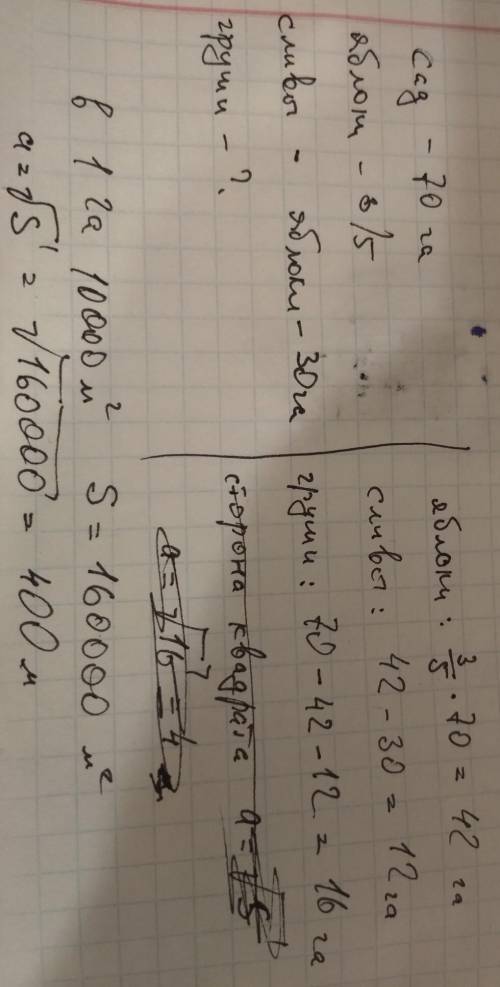 сад - 70 га
яблони - 3/5
сливы - яблони - 30 га
груши - ?
яблони: 3/5 · 70 = 42 га
сливы: 42 - 30 = 12 га
груши: 70 - 42 - 12 = 16 га
сторона квадрата a = √S
a = √16 = 4
в 1 га 10000 м² S = 160000 м²
a = √S = √160000 = 400 м